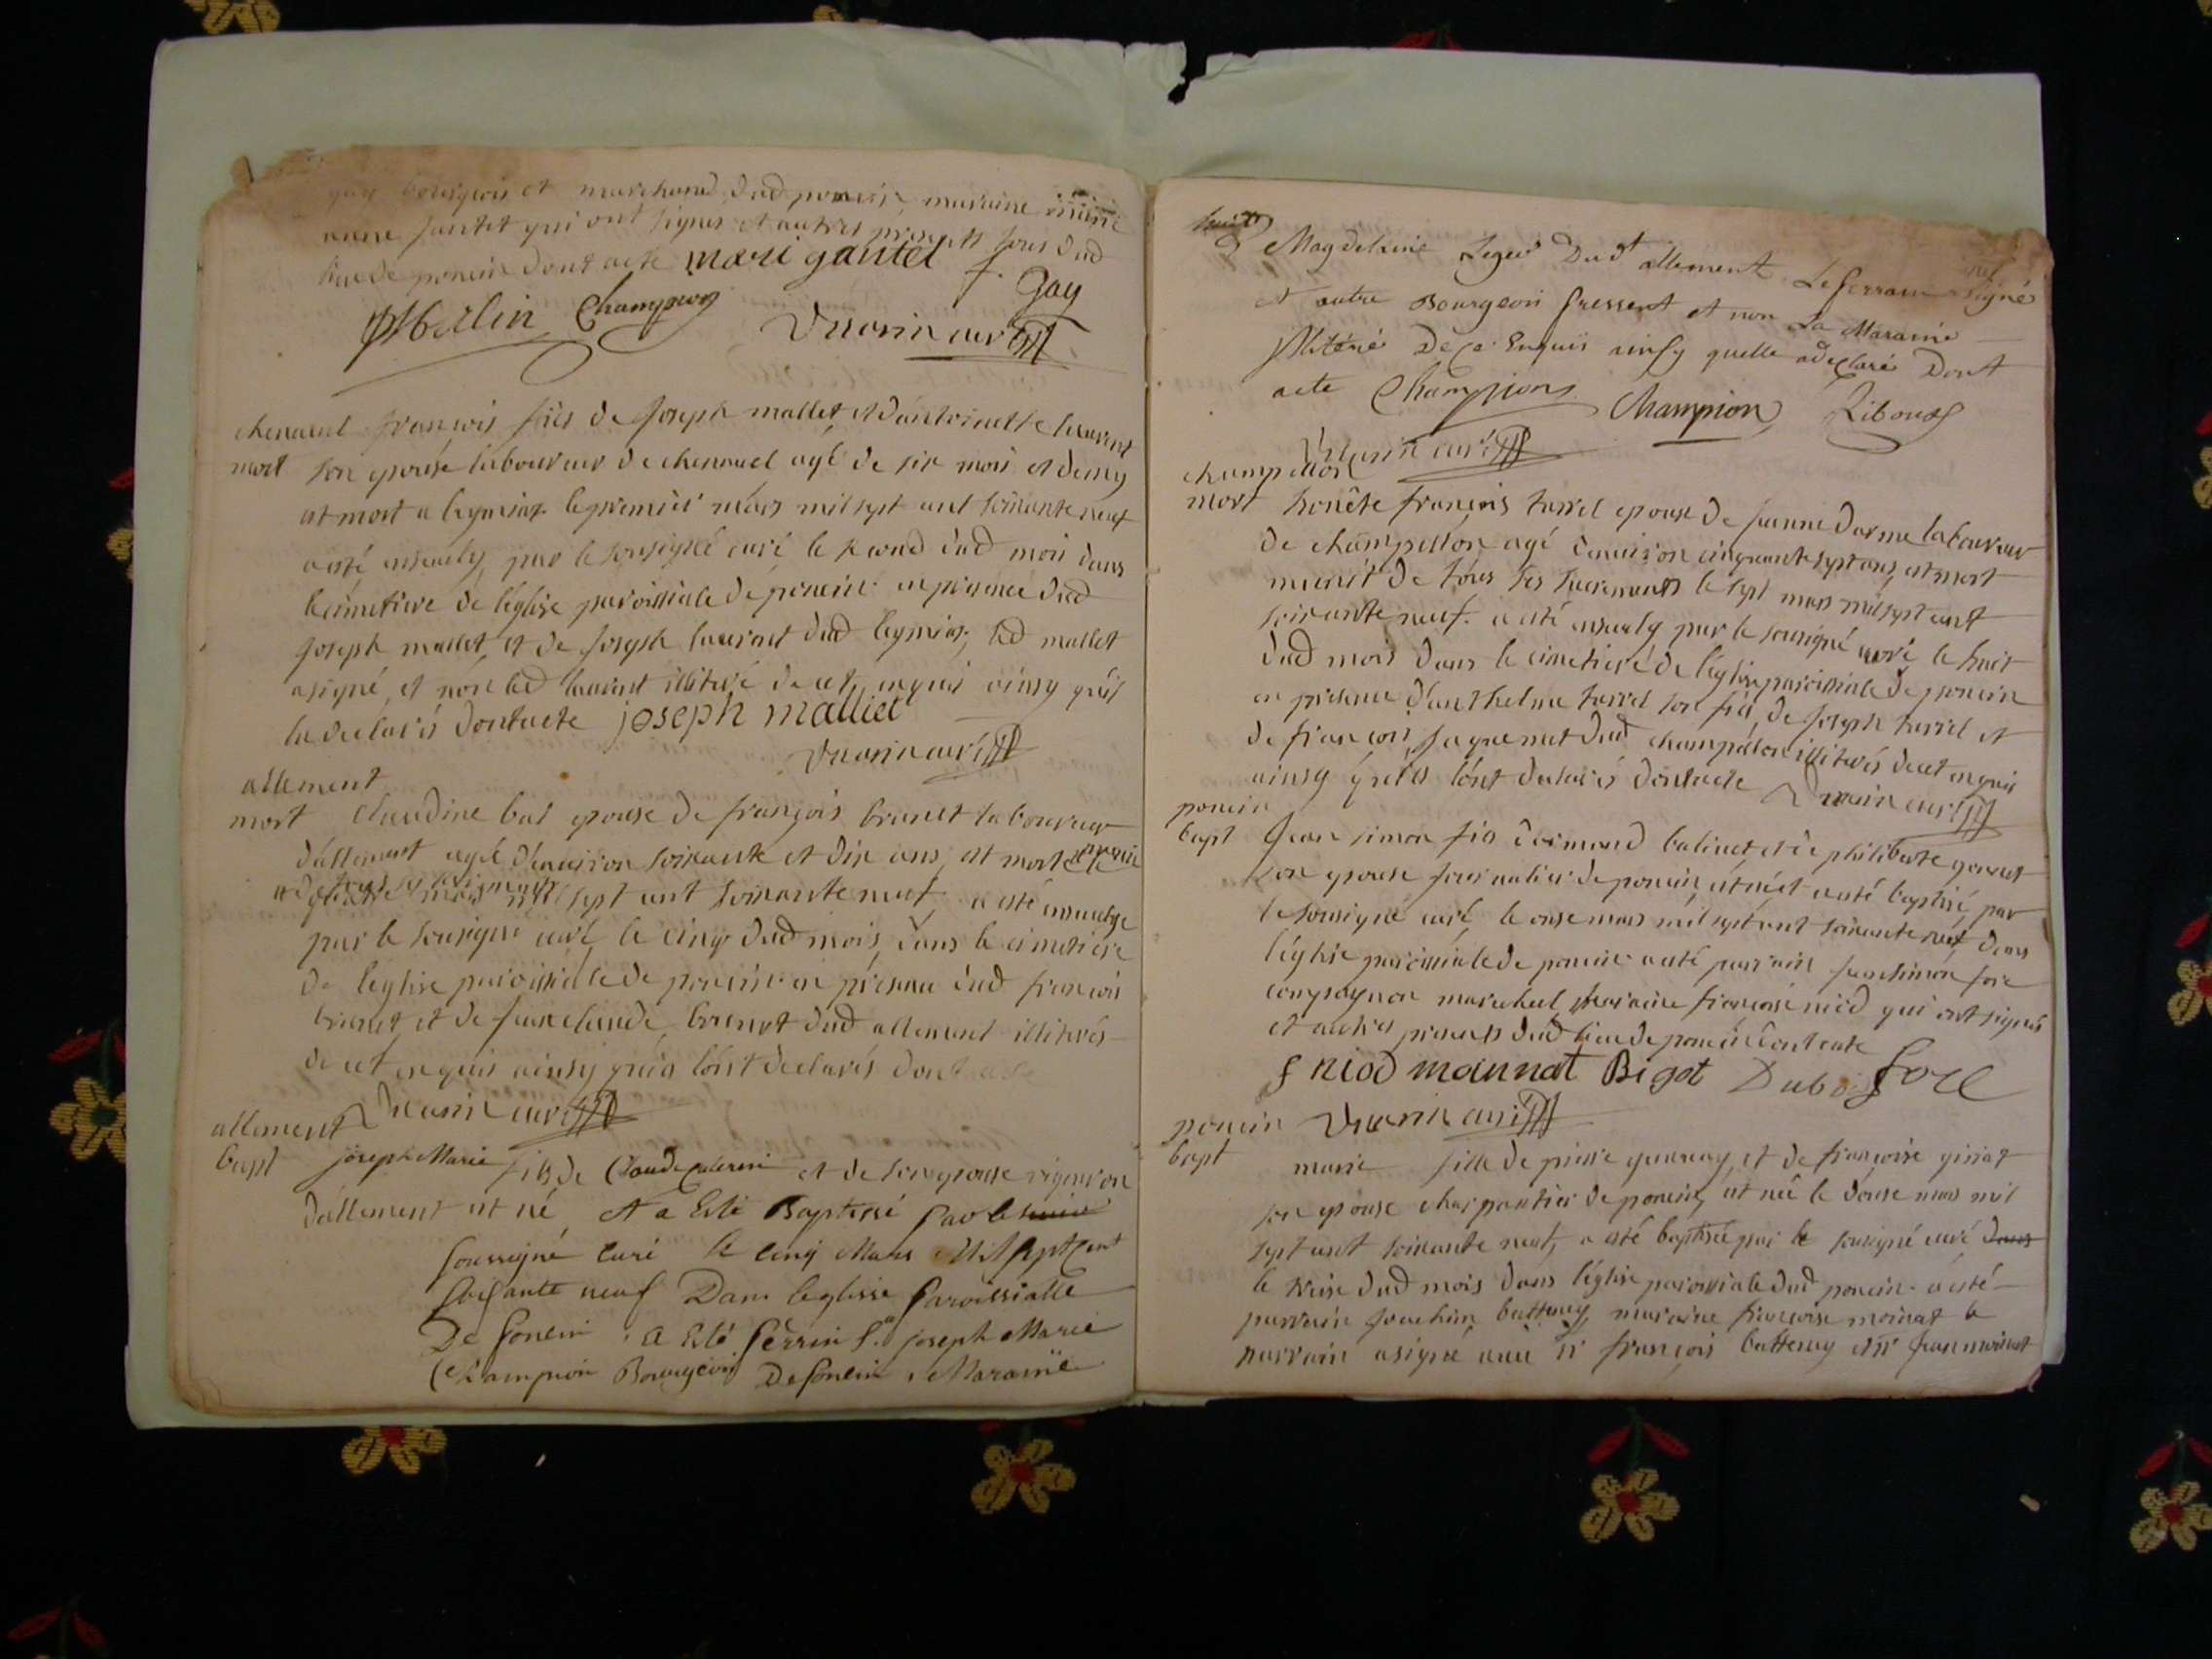 gay bourgeois et marchand dud poncin, maraine
anne gautet qui ont signés et autres presents tous dud
lieu de poncin dont acte mari gautet f. Gay
Merlin Champion Vuarin curé
chenavel françois fils de joseph mallet et dantoinette laurent
mort son epouse laboureur de chenavel agé de six mois et demy
est mort a leymiat le premier mars mil sept cent soixante neuf
a esté ensevely par le sousigné curé le second dud mois dans
le cimetiere de léglise paroissiale de poncin en présence dud
joseph mallet, et de joseph laurent dud leymiat, led mallet
a signé, et non led laurent illiteré de cet enquis ainsy quil
la declarés dont acte joseph malliet
Vuarin curé
allement
mort claudine bal epouse de françois brunet laboureur
dallement agée denviron soixante et dix ans, est morte
sept cent soixante neuf a esté ensevelye
par le sousigné curé le cinq dud mois, dans le cimetiere
de léglise paroissiale de poncin en présence dud françois
brunet, et de jean claude brunet dud allement illiterés
de cet enquis ainsy quils lont declarés dont acte
Vuarin curé
allement
bapt joseph Marie fils de Claude et de son epouse vigneron
dallement est né et a Esté Baptisé par le
soussigné Curé le cinq Mars Mil sept Cent
soisante neuf Dans leglise Paroissialle
De Poncin a Esté Perrin Sr joseph Marie
Champion Bourgeois De Poncin, Maraine
Magdelaine Leger Dudt allement Le Perrain signé
et autre Bourgeois Pressent et non La Maraine
illiterié De ce Enquis ainsy quelle a declaré Dont
acte Champion Champion Riboud
Vuarin curé
champellon
mort honête françois tarrel epoux de jeanne darme laboureur
de champellon agé denviron cinquante sept ans, est mort
munit de tous ses sacrements le sept mars mil sept cent
soixante neuf. a esté ensevely par le sousigné curé le huit
dud mois dans le cimetiere de léglise paroissiale de poncin
en présence danthelme tarrel son fils, de joseph tarrel et
de françois jaquemet dud champellon illiterés de cet enquis
ainsy quils lont declarés dont acte Vuarin curé
poncin
bapt jean simon fils daimond balivet et de philiberte gouvet
son epouse journalier de poncin, est né et a esté baptisé par
le sousigné curé, le onse mars mil sept cent soixante neuf dans
léglise paroissiale de poncin a esté parrain jean simon fore
compagnon marechal, maraine françoise niod qui ont signés
et autres presents dud lieu de poncin dont acte
f niod mannat Bigot Dubois fore
poncin Vuarin curé
bapt marie fille de pierre et de françoise
son epouse charpantier de poncin, est née le douse mars mil
sept cent soixante neuf, a esté baptisée par le sousigné curé dans
le treise dud mois dans léglise paroissiale dud poncin. a esté
parrain joachim battency, maraine françoise moinat le
parrain a signé avec sr françois battency et sr jean moinat